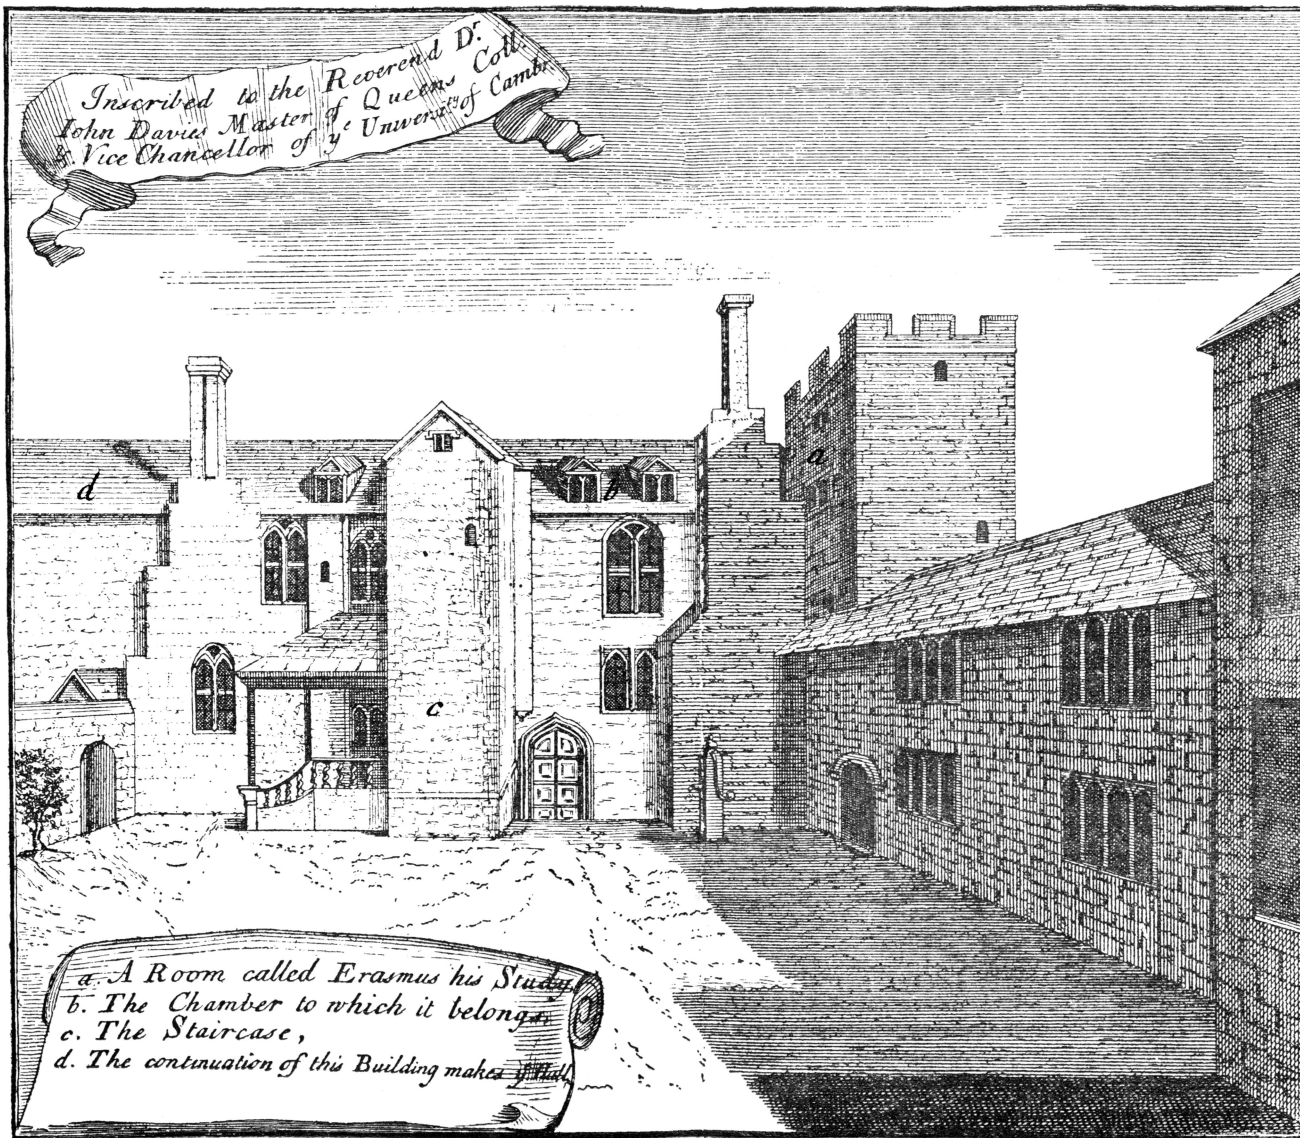 Inscribed to the Reverend Dr.
John Davies Master of Queens Coll.
& Vice Chancellor of ye University of Cambr.
d
b
a
c
a. A Room called Erasmus his Study,
b. The Chamber to which it belongs.
c. The Staircase,
d. The continuation of this Building makes ye Hall,